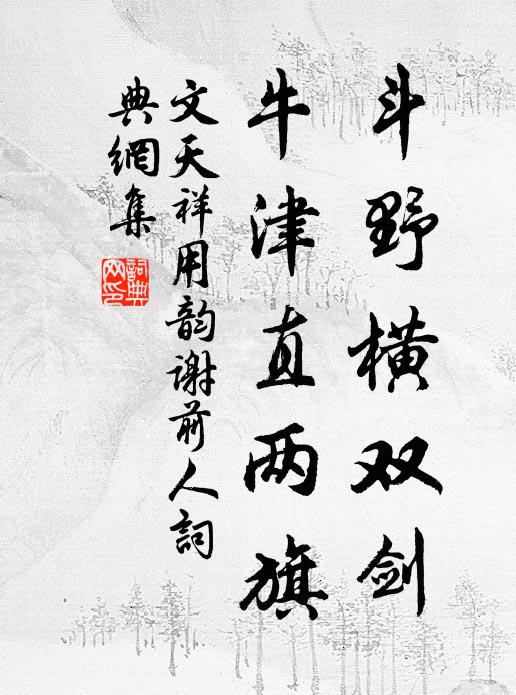 斗野横双剑
牛津直两旗
文天祥用韵谢前人詞
典網集
詞典
网印